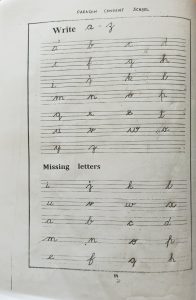 CARENQIN CONVENT SCHOOL
Write a - z
a b c d
e f g h
i j k l
m n o p
q r s t
u v w x
y z
Missing letters
i j k l
u v w x
a b c d
m n o p
e f g h